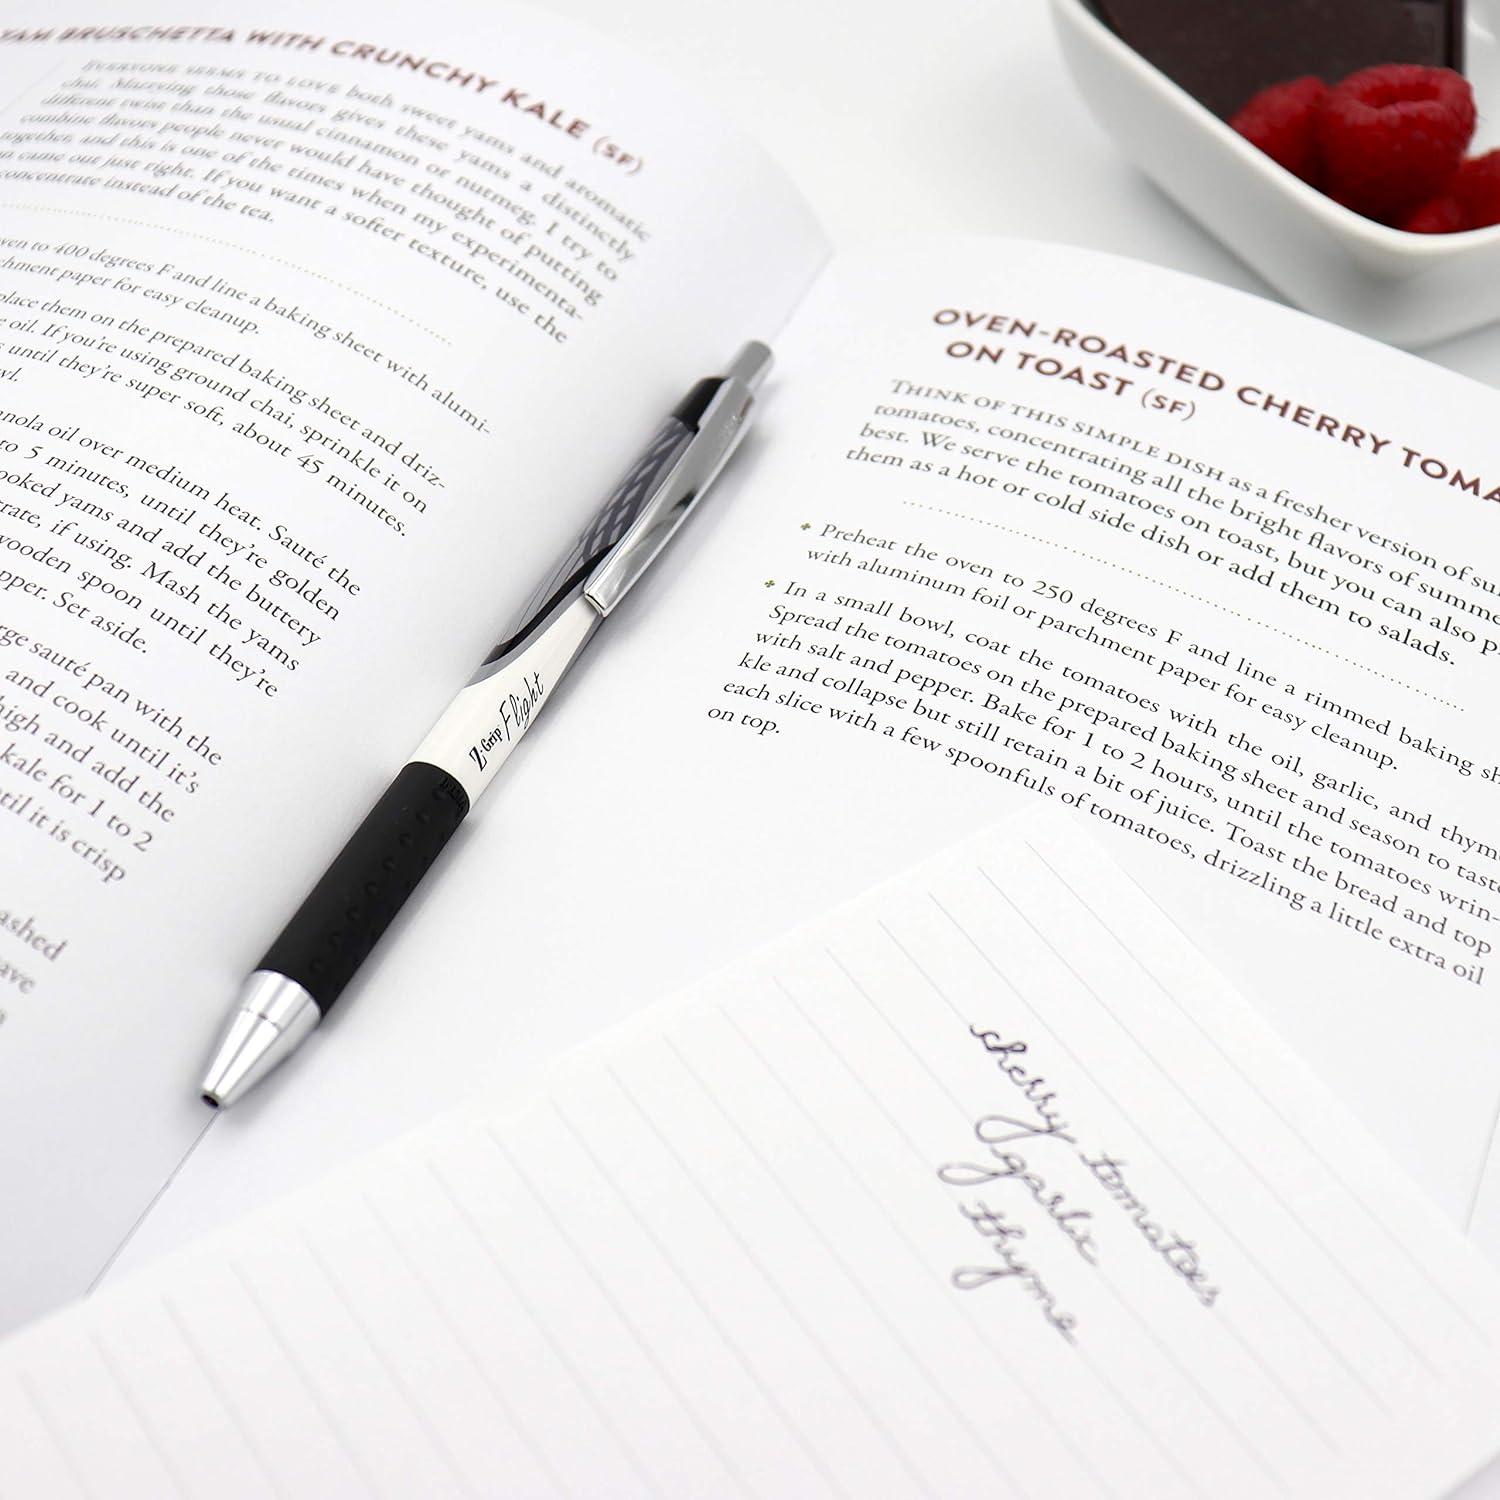 YAM BRUSCHETTA WITH CRUNCHY KALE (SF)
EVERYONE SEEMS TO LOVE both sweet yams and aromatic
chai. Marrying those flavors gives these yams a distinctly
different twist than the usual cinnamon or nutmeg. I try to
combine flavors people never would have thought of putting
together, and this is one of the times when my experimenta-
came out just right. If you want a softer texture, use the
concentrate instead of the tea.
to 400 degrees F and line a baking sheet with alumi-
paper for easy cleanup.
place them on the prepared baking sheet and driz-
oil. If you're using ground chai, sprinkle it on
until they're super soft, about 45 minutes.
oil over medium heat. Sauté the
to 5 minutes, until they're golden
yams and add the buttery
if using. Mash the yams
wooden spoon until they're
Set aside.
sauté pan with the
and cook until it's
high and add the
kale for 1 to 2
it is crisp
OVEN-ROASTED CHERRY
ON TOAST (SF)
THINK OF THIS SIMPLE DISH as a fresher version of
tomatoes, concentrating all the bright flavors of
best. We serve the tomatoes on toast, but you can also
them as a hot or cold side dish or add them to salads.
Preheat the oven to 250 degrees F and line a rimmed baking
with aluminum foil or parchment paper for easy cleanup.
In a small bowl, coat the tomatoes with the oil, garlic, and
Spread the tomatoes on the prepared baking sheet and season to
with salt and pepper. Bake for 1 to 2 hours, until the tomatoes wrin-
kle and collapse but still retain a bit of juice. Toast the bread and top
each slice with a few spoonfuls of tomatoes, drizzling a little extra oil
on top.
Z-Grip Flight
cherry tomatoes
garlic
thyme